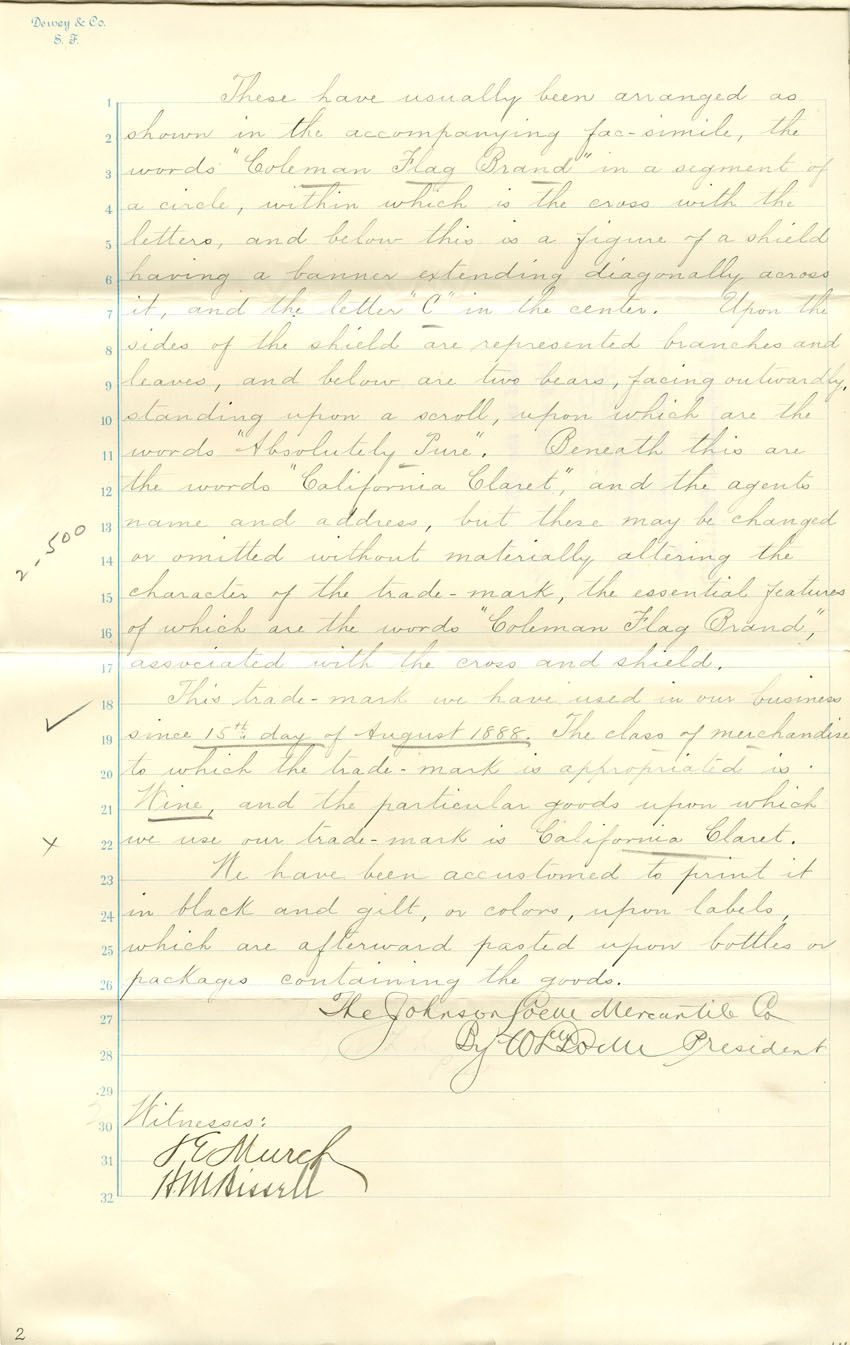 Dewey & Co.
S. F.
1 These have usually been arranged as
2 shown in the accompanying fac-simile, the
3 words "Coleman Flag Brand" in a segment of
4 a circle, within which is the cross with the
5 letters, and below this is a figure of a shield
6 having a banner extending diagonally across
7 it, and the letter "C" in the center. Upon the
8 sides of the shield are represented branches and
9 leaves, and below are two bears, facing outwardly,
10 standing upon a scroll, upon which are the
11 words "Absolutely Pure". Beneath this are
12 the words "California Claret", and the agents
13 name and address, but these may be changed
2-500
14 or omitted without materially altering the
15 character of the trade-mark, the essential features
16 of which are the words "Coleman Flag Brand",
17 associated with the cross and shield.
18 This trade-mark we have used in our business
19 since 15th day of August 1888. The class of merchandise
20 to which the trade-mark is appropriated is
21 Wine, and the particular goods upon which
22 we use our trade-mark is California Claret.
23 We have been accustomed to print it
24 in black and gilt, or colors, upon labels,
25 which are afterward pasted upon bottles or
26 packages containing the goods.
27 The Johnson Mercantile Co
28 By President
29
30 Witnesses:
31 Murch
32 H M Bissell
2